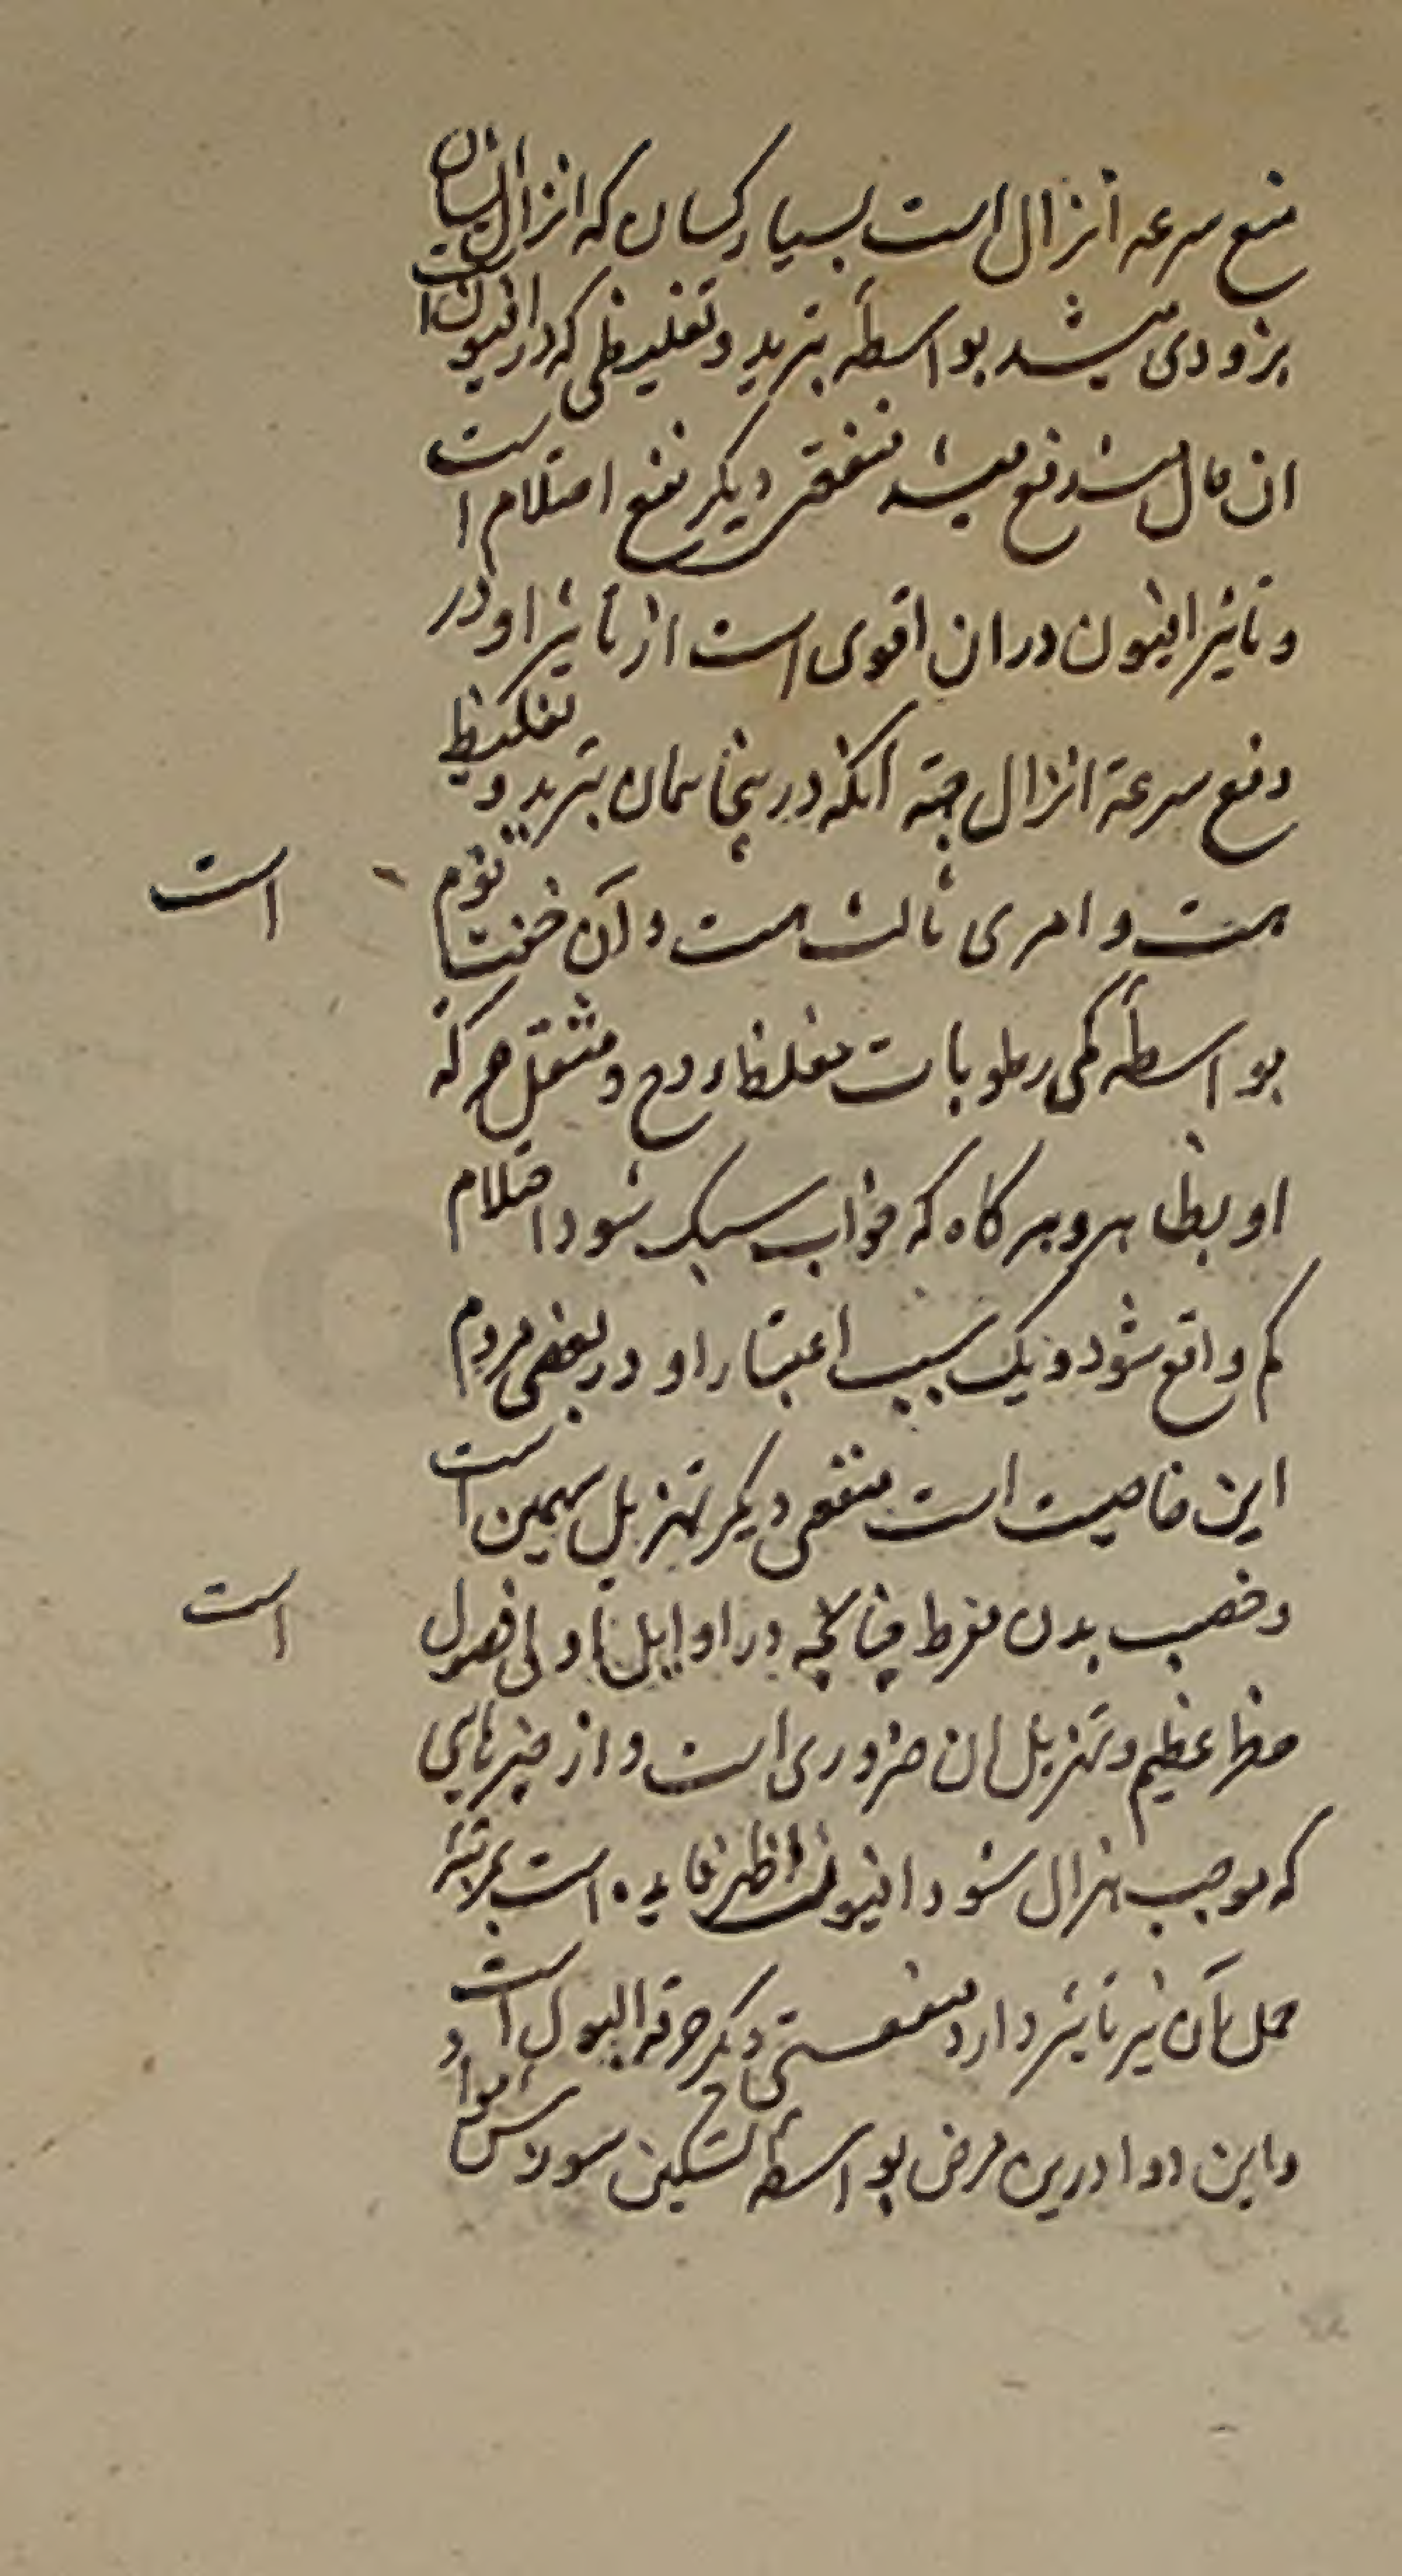 منع سرعه انزال است بسیار کسان که انزال ایشان
بزودی میشد بواسطهٔ تبرید و تغلیظی که در افیون است
ان حال ایشان دفع میشد منفعتی دیگر منع احتلام است
و تاثیر افیون در ان اقوی است از تاثیر او در
دفع سرعة انزال جهة آنکه درینجا همان تبرید و تغلیظ
هست و امری ثالث هست و آن خفت نوم است
بواسطهٔ کمی رطوبات مغلظ روح و مثقل حرکة
او بظاهر و هر کاه که خواب سبک شود احتلام
کم واقع شود و یک سبب اعتبار او در بعضی مردم
این خاصیت است منفعی دیکر تهزیل سمین است
و خصب بدن مفرط چنانچه در اوایل اولی فصول است
خطر عظیم و تهزیل ان ضروری است و از چیزهایی
که موجب هزال شود افیون اظهر فایده است بمرتبه
حمل آن نیز تاثیر دارد منفعتی دیکر حرقة البول است و
و این دوا درین مرض بواسطهٔ تسکین سوزش